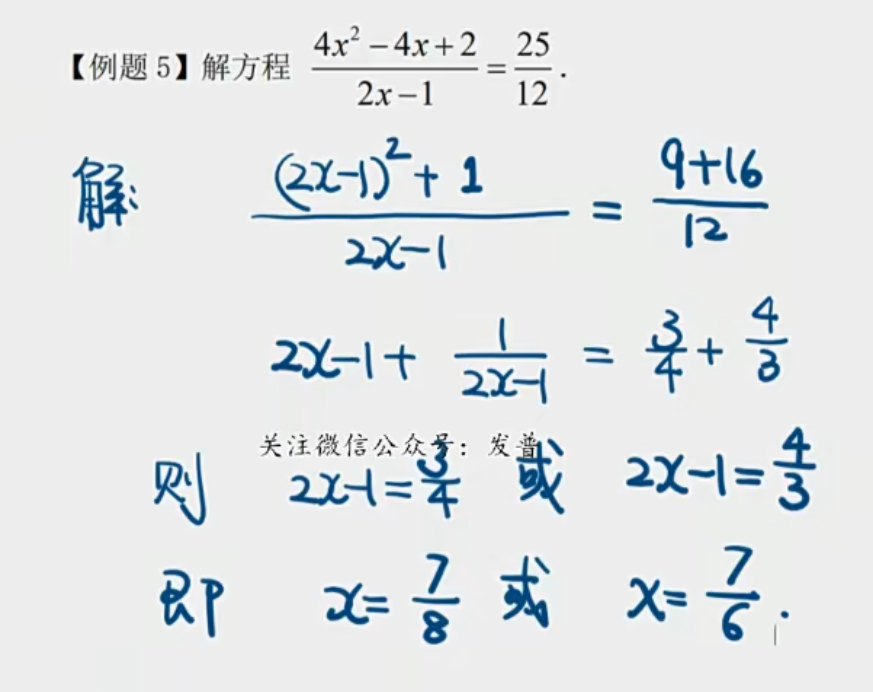 【例题 5】解方程 \frac{4x^2-4x+2}{2x-1}=\frac{25}{12}.
解: \frac{(2x-1)^2+1}{2x-1}=\frac{9+16}{12}
2x-1+\frac{1}{2x-1}=\frac{3}{4}+\frac{4}{3}
关注微信公众号：发普
则 2x-1=\frac{3}{4} 或 2x-1=\frac{4}{3}
即 x=\frac{7}{8} 或 x=\frac{7}{6}.